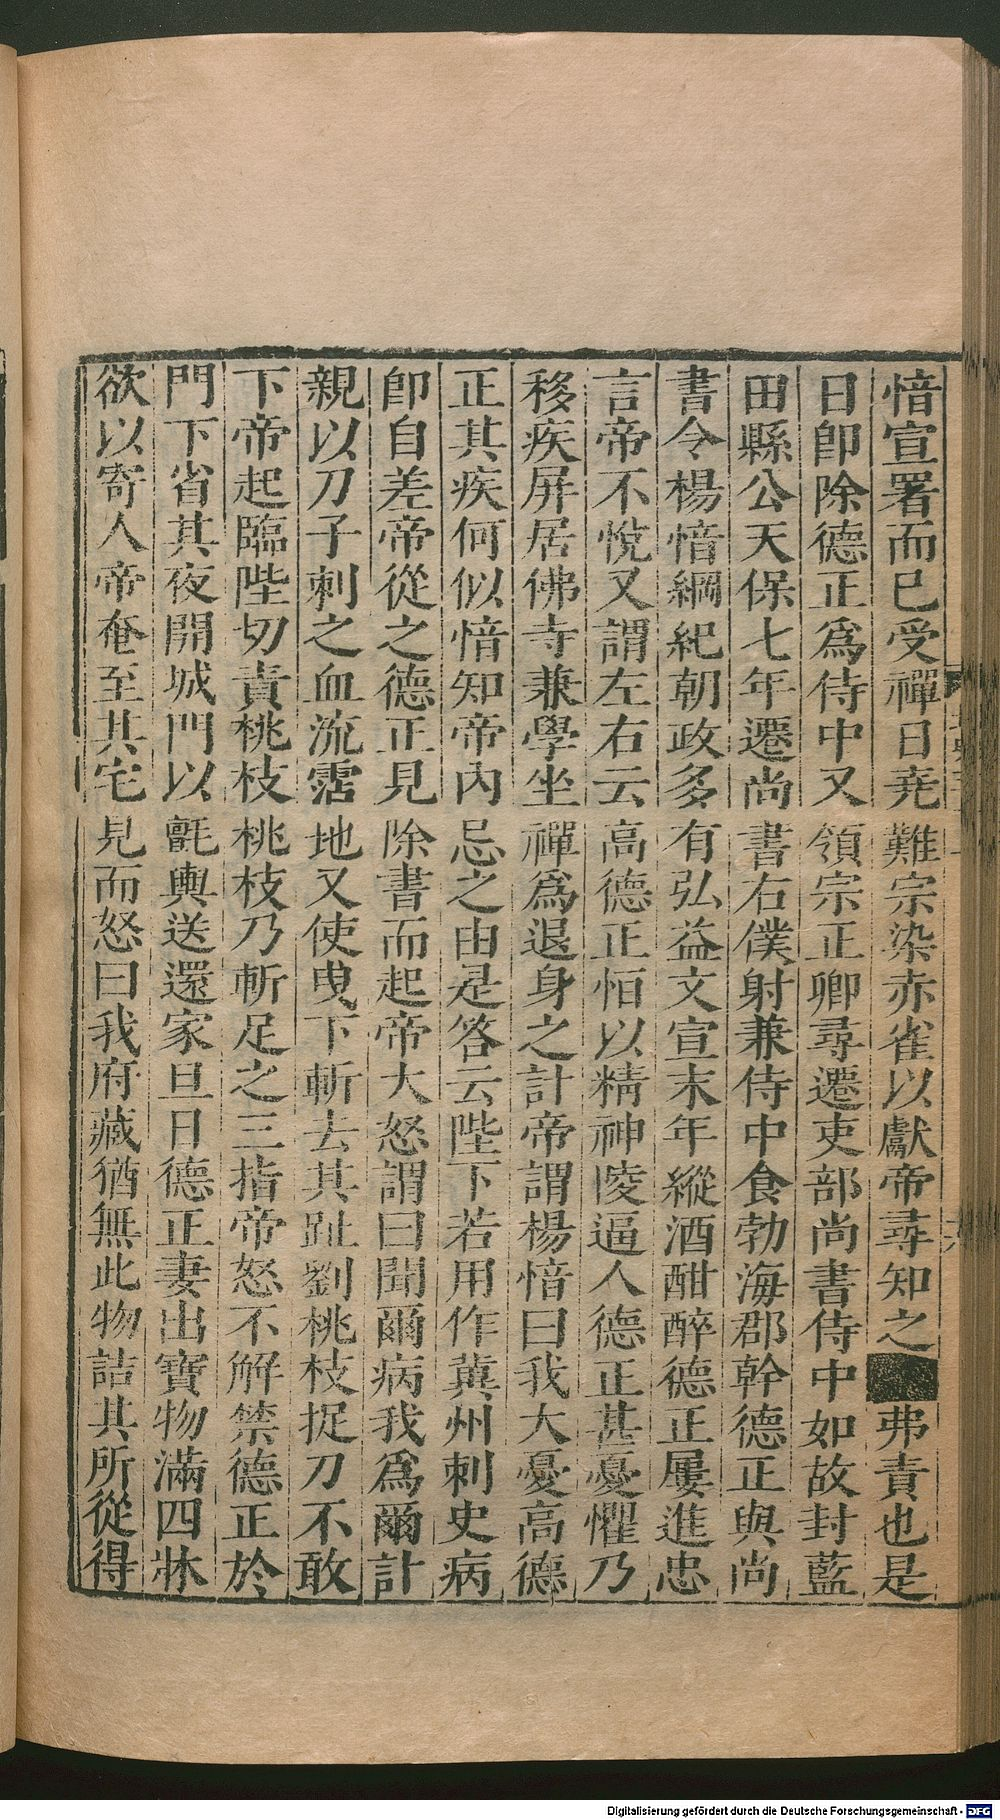 愔宣署而已受禪日堯難宗染赤雀以獻帝尋知之弗責也是
日即除德正爲侍中又領宗正卿尋遷吏部尚書侍中如故封藍
田縣公天保七年遷尚書右僕射兼侍中食勃海郡幹德正與尚
書令楊愔綱紀朝政多有弘益文宣末年縱酒酣醉德正屢進忠
言帝不悅又謂左右云高德正恒以精神陵逼人德正甚憂懼乃
移疾屏居佛寺兼學坐禪爲退身之計帝謂楊愔曰我大憂高德
正其疾何似愔知帝內忌之由是答云陛下若用作冀州刺史病
即自差帝從之德正見除書而起帝大怒謂曰聞爾病我爲爾計
親以刀子刺之血流霑地又使曳下斬去其趾劉桃枝捉刀不敢
下帝起臨陛切責桃枝桃枝乃斬足之三指帝怒不解禁德正於
門下省其夜開城門以氈輿送還家旦日德正妻出寶物滿四牀
欲以寄人帝奄至其宅見而怒曰我府藏猶無此物詰其所從得
Digitalisierung gefördert durch die Deutsche Forschungsgemeinschaft - DFG